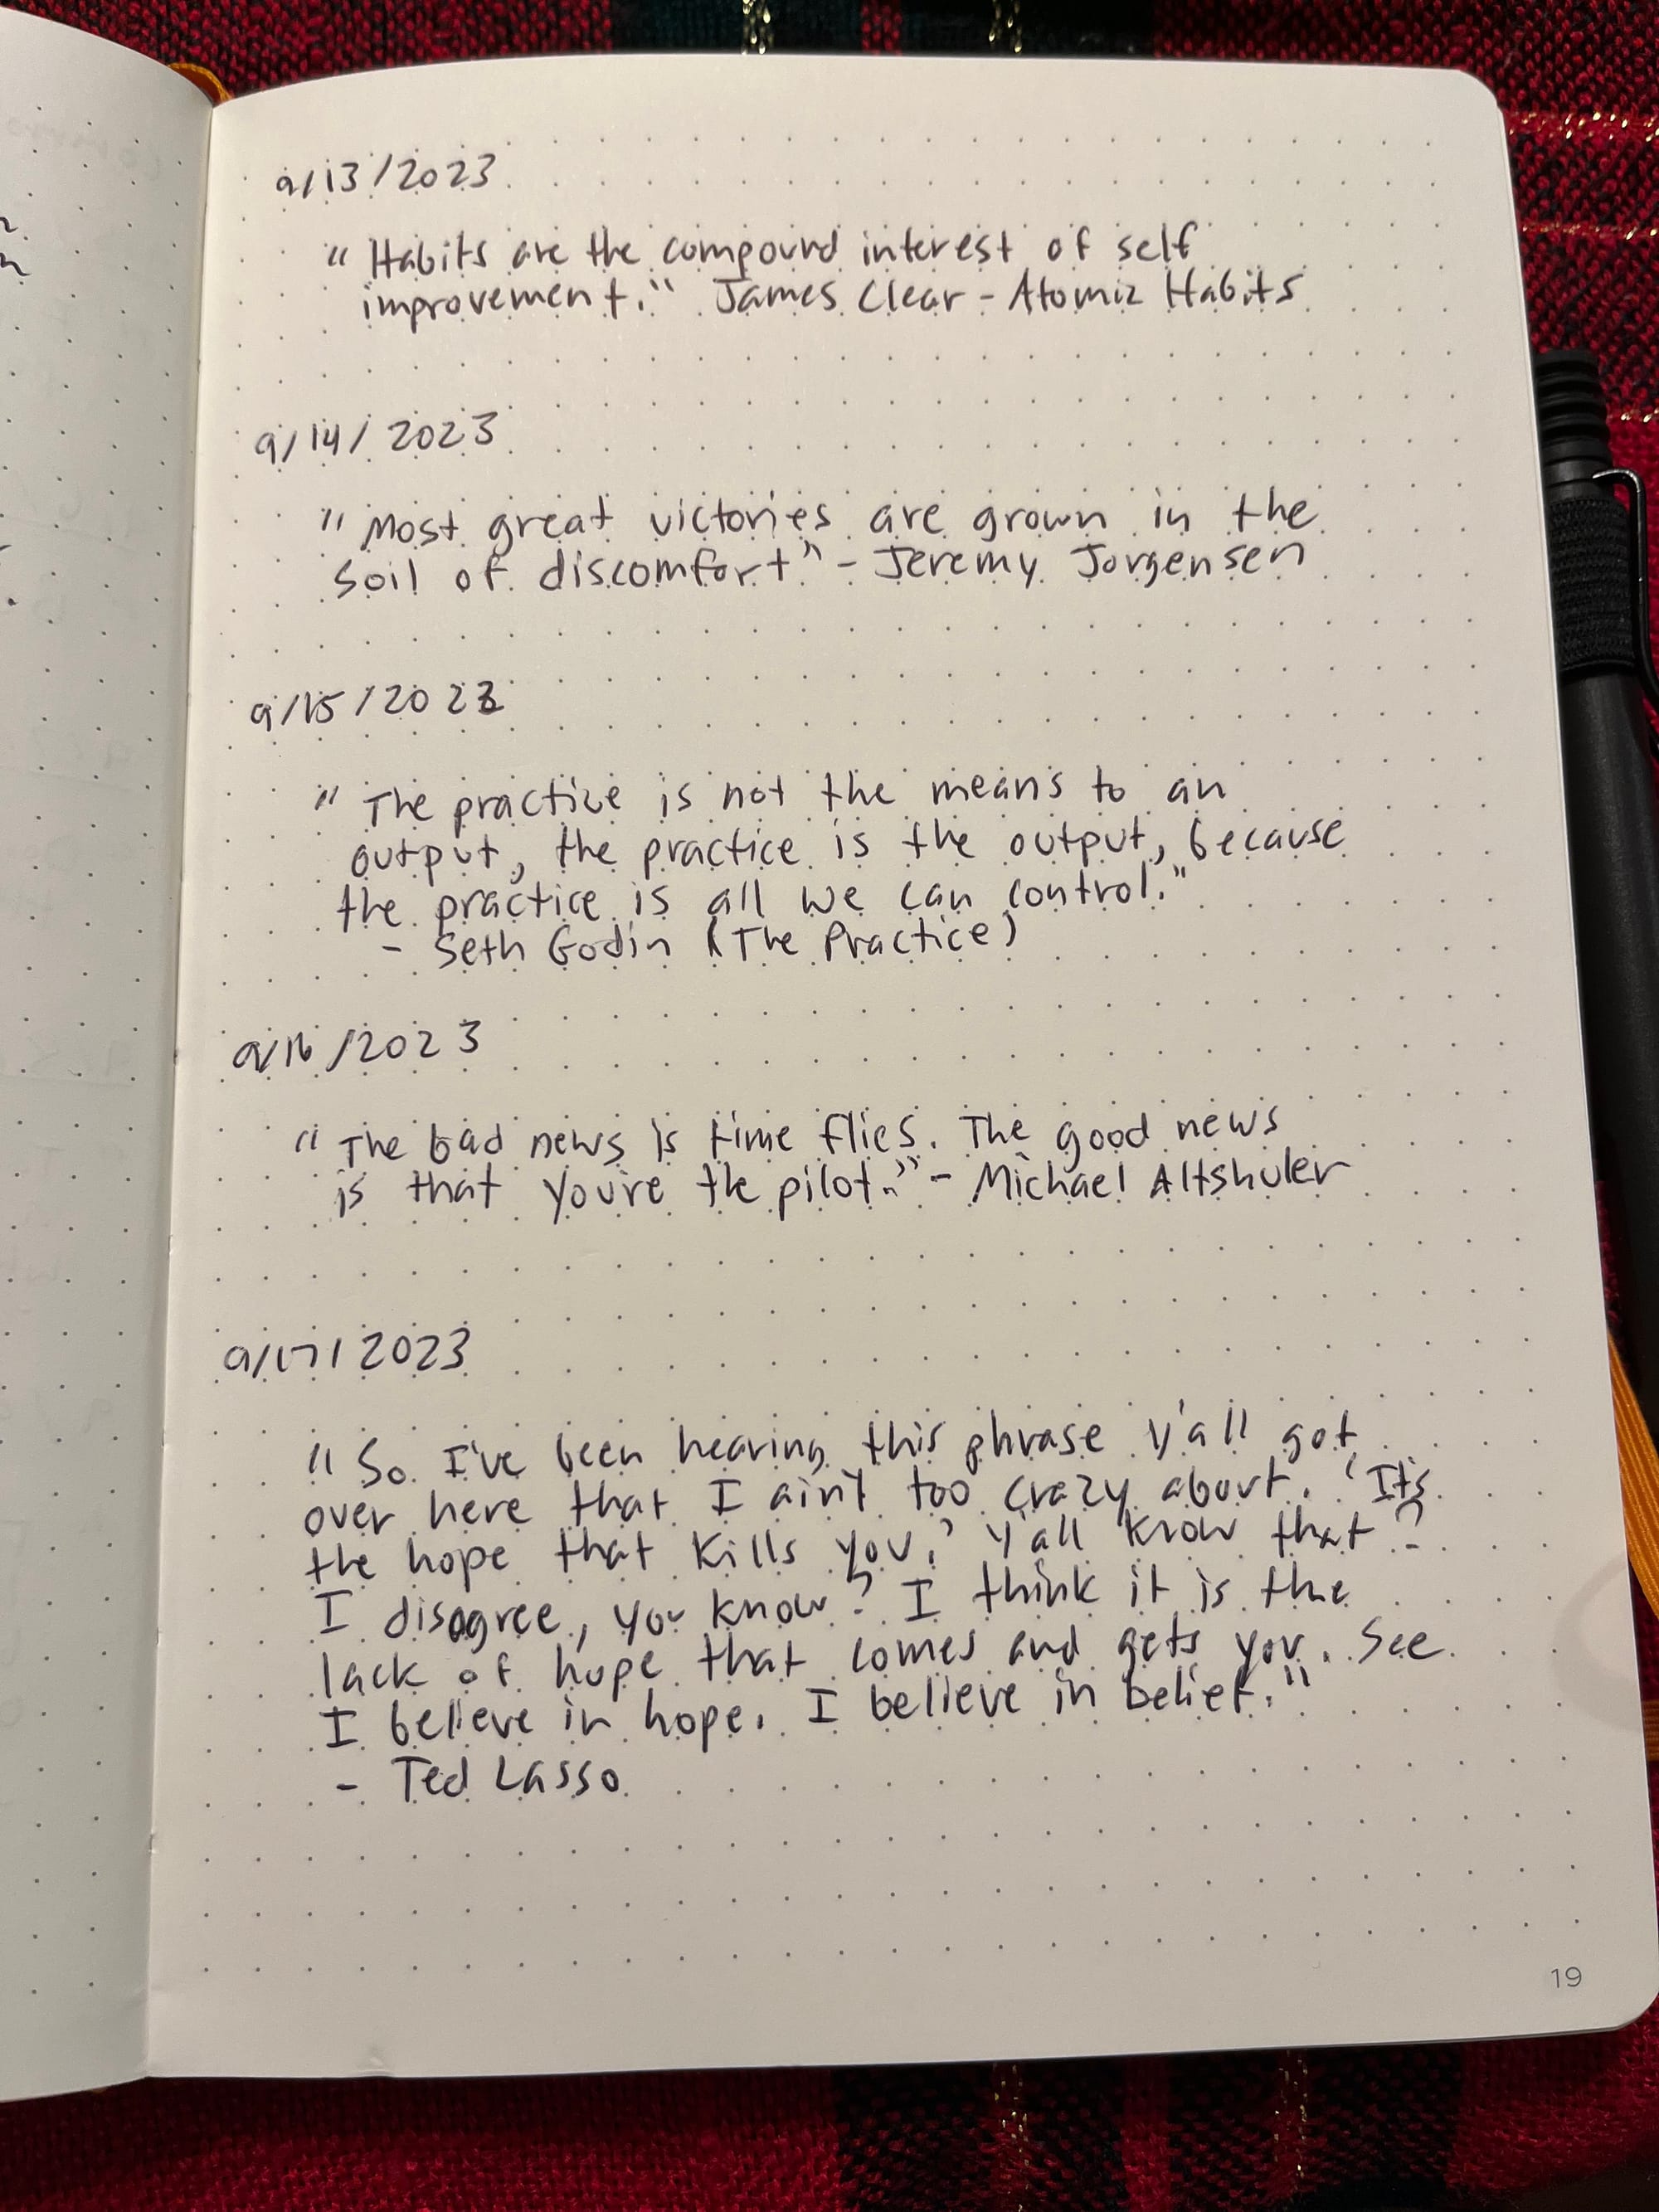 9/13/2023
"Habits are the compound interest of self
improvement." James Clear - Atomic Habits
9/14/2023
"Most great victories are grown in the
soil of discomfort" - Jeremy Jorgensen
9/15/2023
"The practice is not the means to an
output, the practice is the output, because
the practice is all we can control."
- Seth Godin (The Practice)
9/16/2023
"The bad news is time flies. The good news
is that you're the pilot." - Michael Altshuler
9/17/2023
"So I've been hearing this phrase y'all got
over here that I ain't too crazy about. 'It's
the hope that kills you.' Y'all know that?
I disagree, you know? I think it is the
lack of hope that comes and gets you. See
I believe in hope. I believe in belief."
- Ted Lasso
19